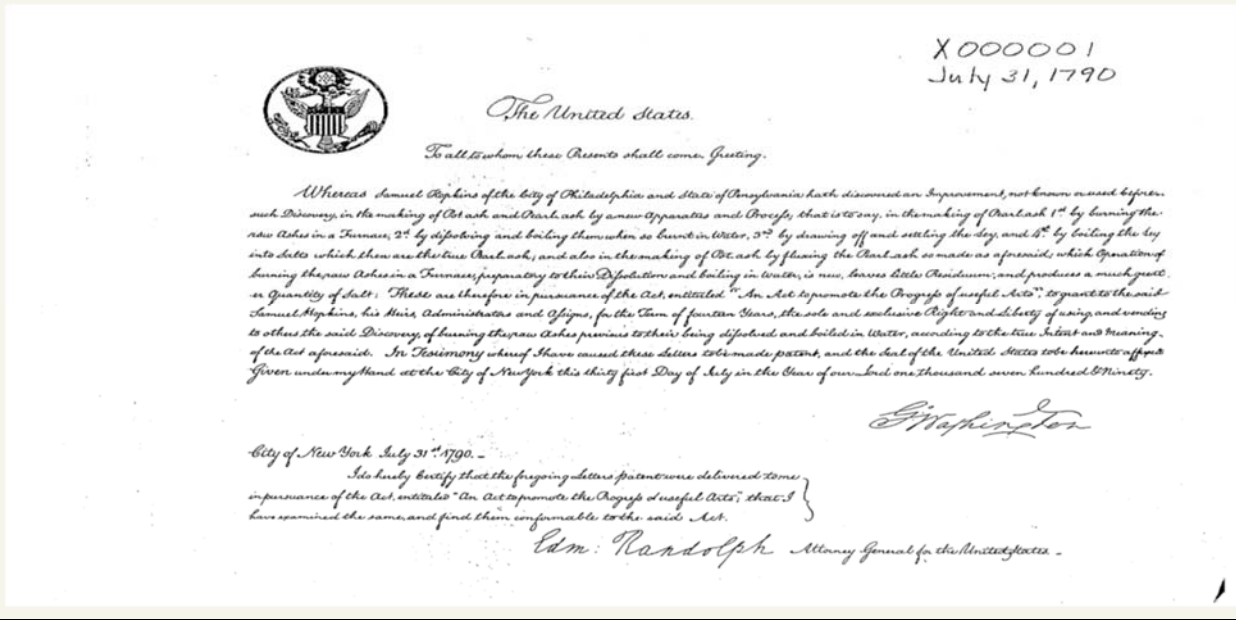 X000001
July 31, 1790
The United States.
To all to whom these Presents shall come, Greeting.
Whereas Samuel Hopkins of the City of Philadelphia and State of Pensylvania hath discovered an Improvement, not known or used before
such Discovery, in the making of Pot ash and Pearl ash by a new Apparatus and Process; that is to say, in the making of Pearl ash 1st. by burning the
raw Ashes in a Furnace, 2d. by dissolving and boiling them when so burnt in Water, 3rd. by drawing off and settling the Ley, and 4th. by boiling the Ley
into Salts which then are the true Pearl ash; and also in the making of Pot ash by fluxing the Pearl ash so made as aforesaid; which Operation of
burning the raw Ashes in a Furnace, preparatory to their Dissolution and boiling in Water, is new, leaves little Residuum; and produces a much great
er Quantity of Salt: These are therefore in pursuance of the Act, entituled "An Act to promote the Progress of useful Arts", to grant to the said
Samuel Hopkins, his Heirs, Administrators and Assigns, for the Term of fourteen Years, the sole and exclusive Right and Liberty of using and vending
to others the said Discovery, of burning the raw Ashes previous to their being dissolved and boiled in Water, according to the true Intent and Meaning
of the Act aforesaid. In Testimony whereof I have caused these Letters to be made patent, and the Seal of the United States to be hereunto affixed
Given under my Hand at the City of New York this thirty first Day of July in the Year of our Lord one thousand seven hundred & Ninety.
G. Washington
City of New York July 31st. 1790. –
I do hereby Certify that the foregoing Letters patent were delivered to me
in pursuance of the Act, entituled "An Act to promote the Progress of useful Arts"; that I
have examined the same, and find them conformable to the said Act.
Edm: Randolph Attorney General for the United States. –